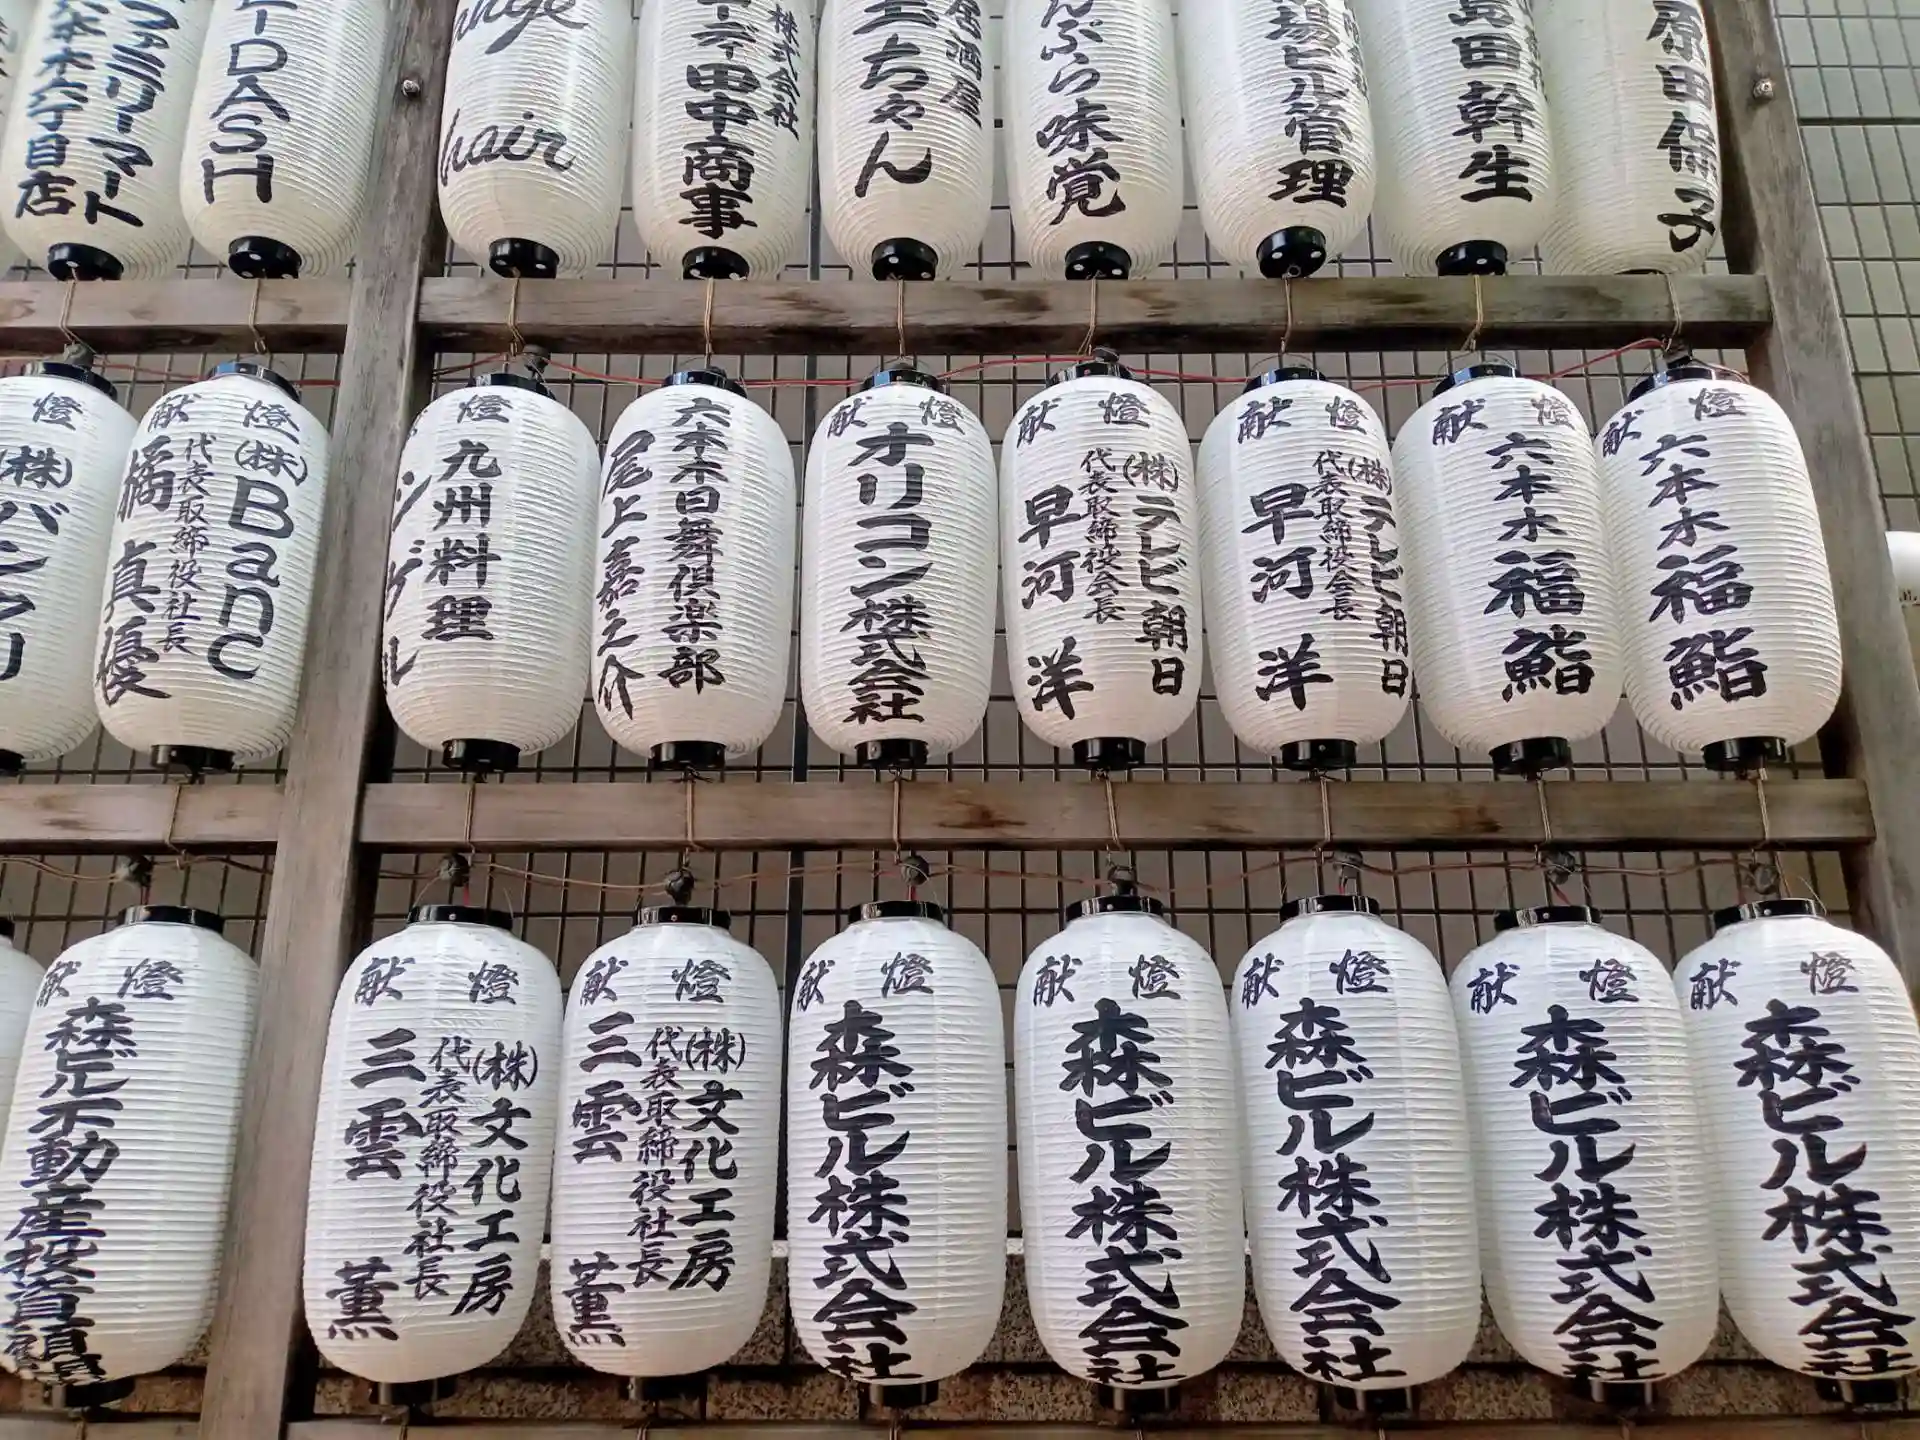 ファミリーマート
六本木六丁目店
DASH
ange
hair
株式会社
田中商事
居酒屋
ちゃん
んぷら味覚
場ビル管理
島田幹生
原田保子
燈
(株)バンクリ
献燈
(株)Banc
代表取締役社長
橘真優
燈
九州料理
シゲル
六本木日舞倶楽部
尾上嘉之介
献燈
オリコン株式会社
献燈
(株)テレビ朝日
代表取締役会長
早河洋
献燈
(株)テレビ朝日
代表取締役会長
早河洋
献燈
六本木福鮨
献燈
六本木福鮨
献燈
森ビル不動産投資顧問
献燈
(株)文化工房
代表取締役社長
三雲薫
献燈
(株)文化工房
代表取締役社長
三雲薫
献燈
森ビル株式会社
献燈
森ビル株式会社
献燈
森ビル株式会社
献燈
森ビル株式会社
献燈
森ビル株式会社